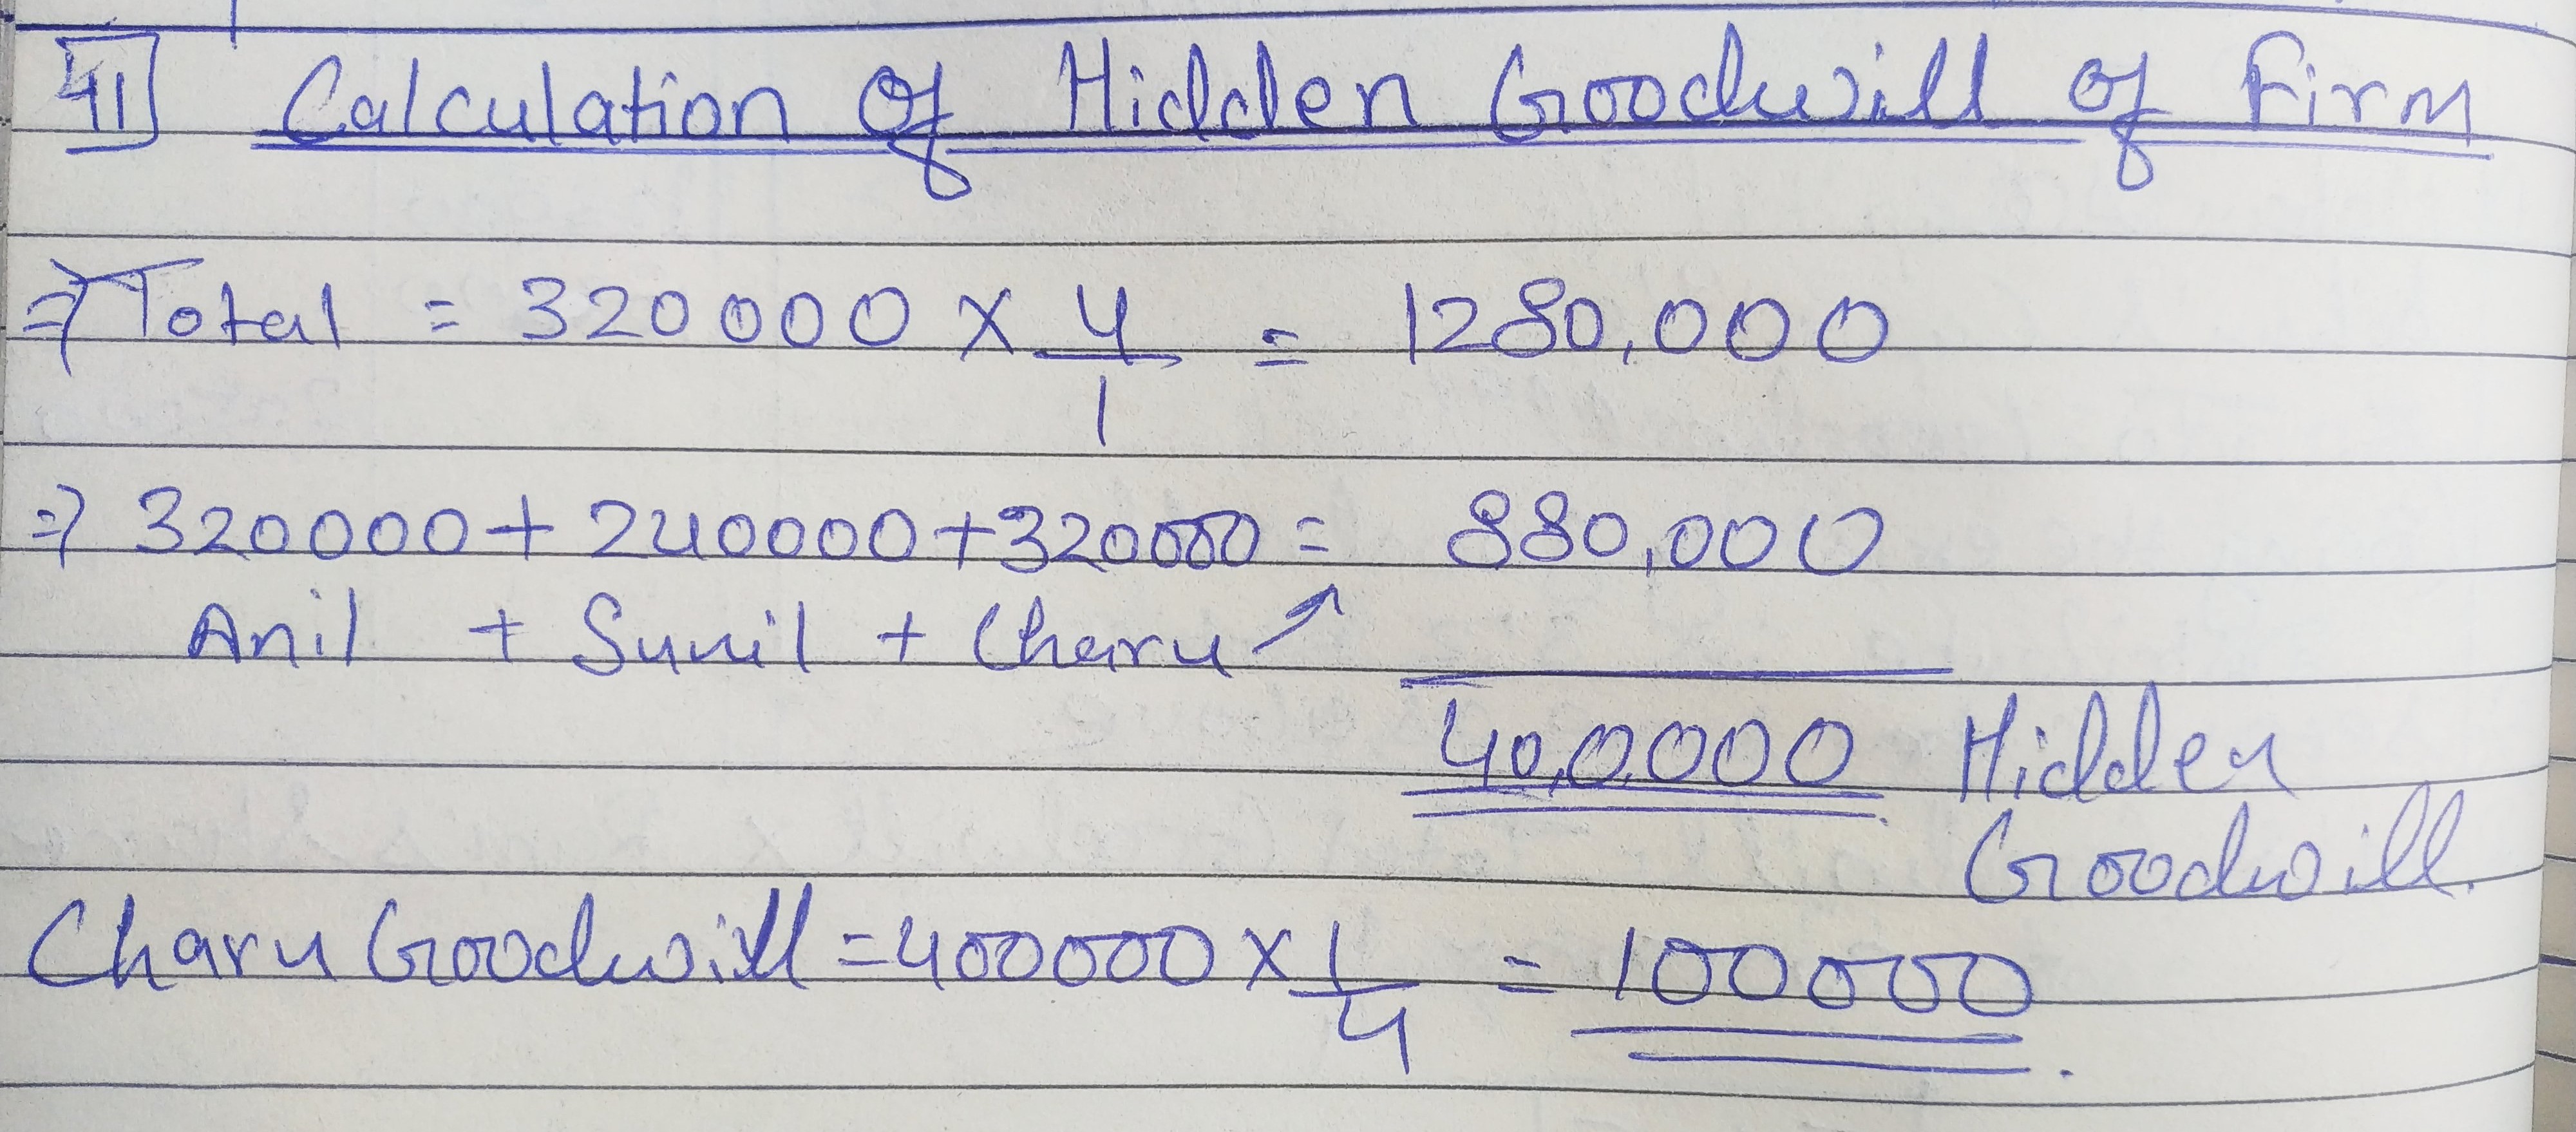 41 Calculation Of Hidden Goodwill of Firm
⇒ Total = 320000 × 4/1 = 1280,000
⇒ 320000 + 240000 + 320000 = 880,000
Anil + Sunil + Charu ↗
40,0000 Hidden
Goodwill.
Charu Goodwill = 400000 × 1/4 = 100000.